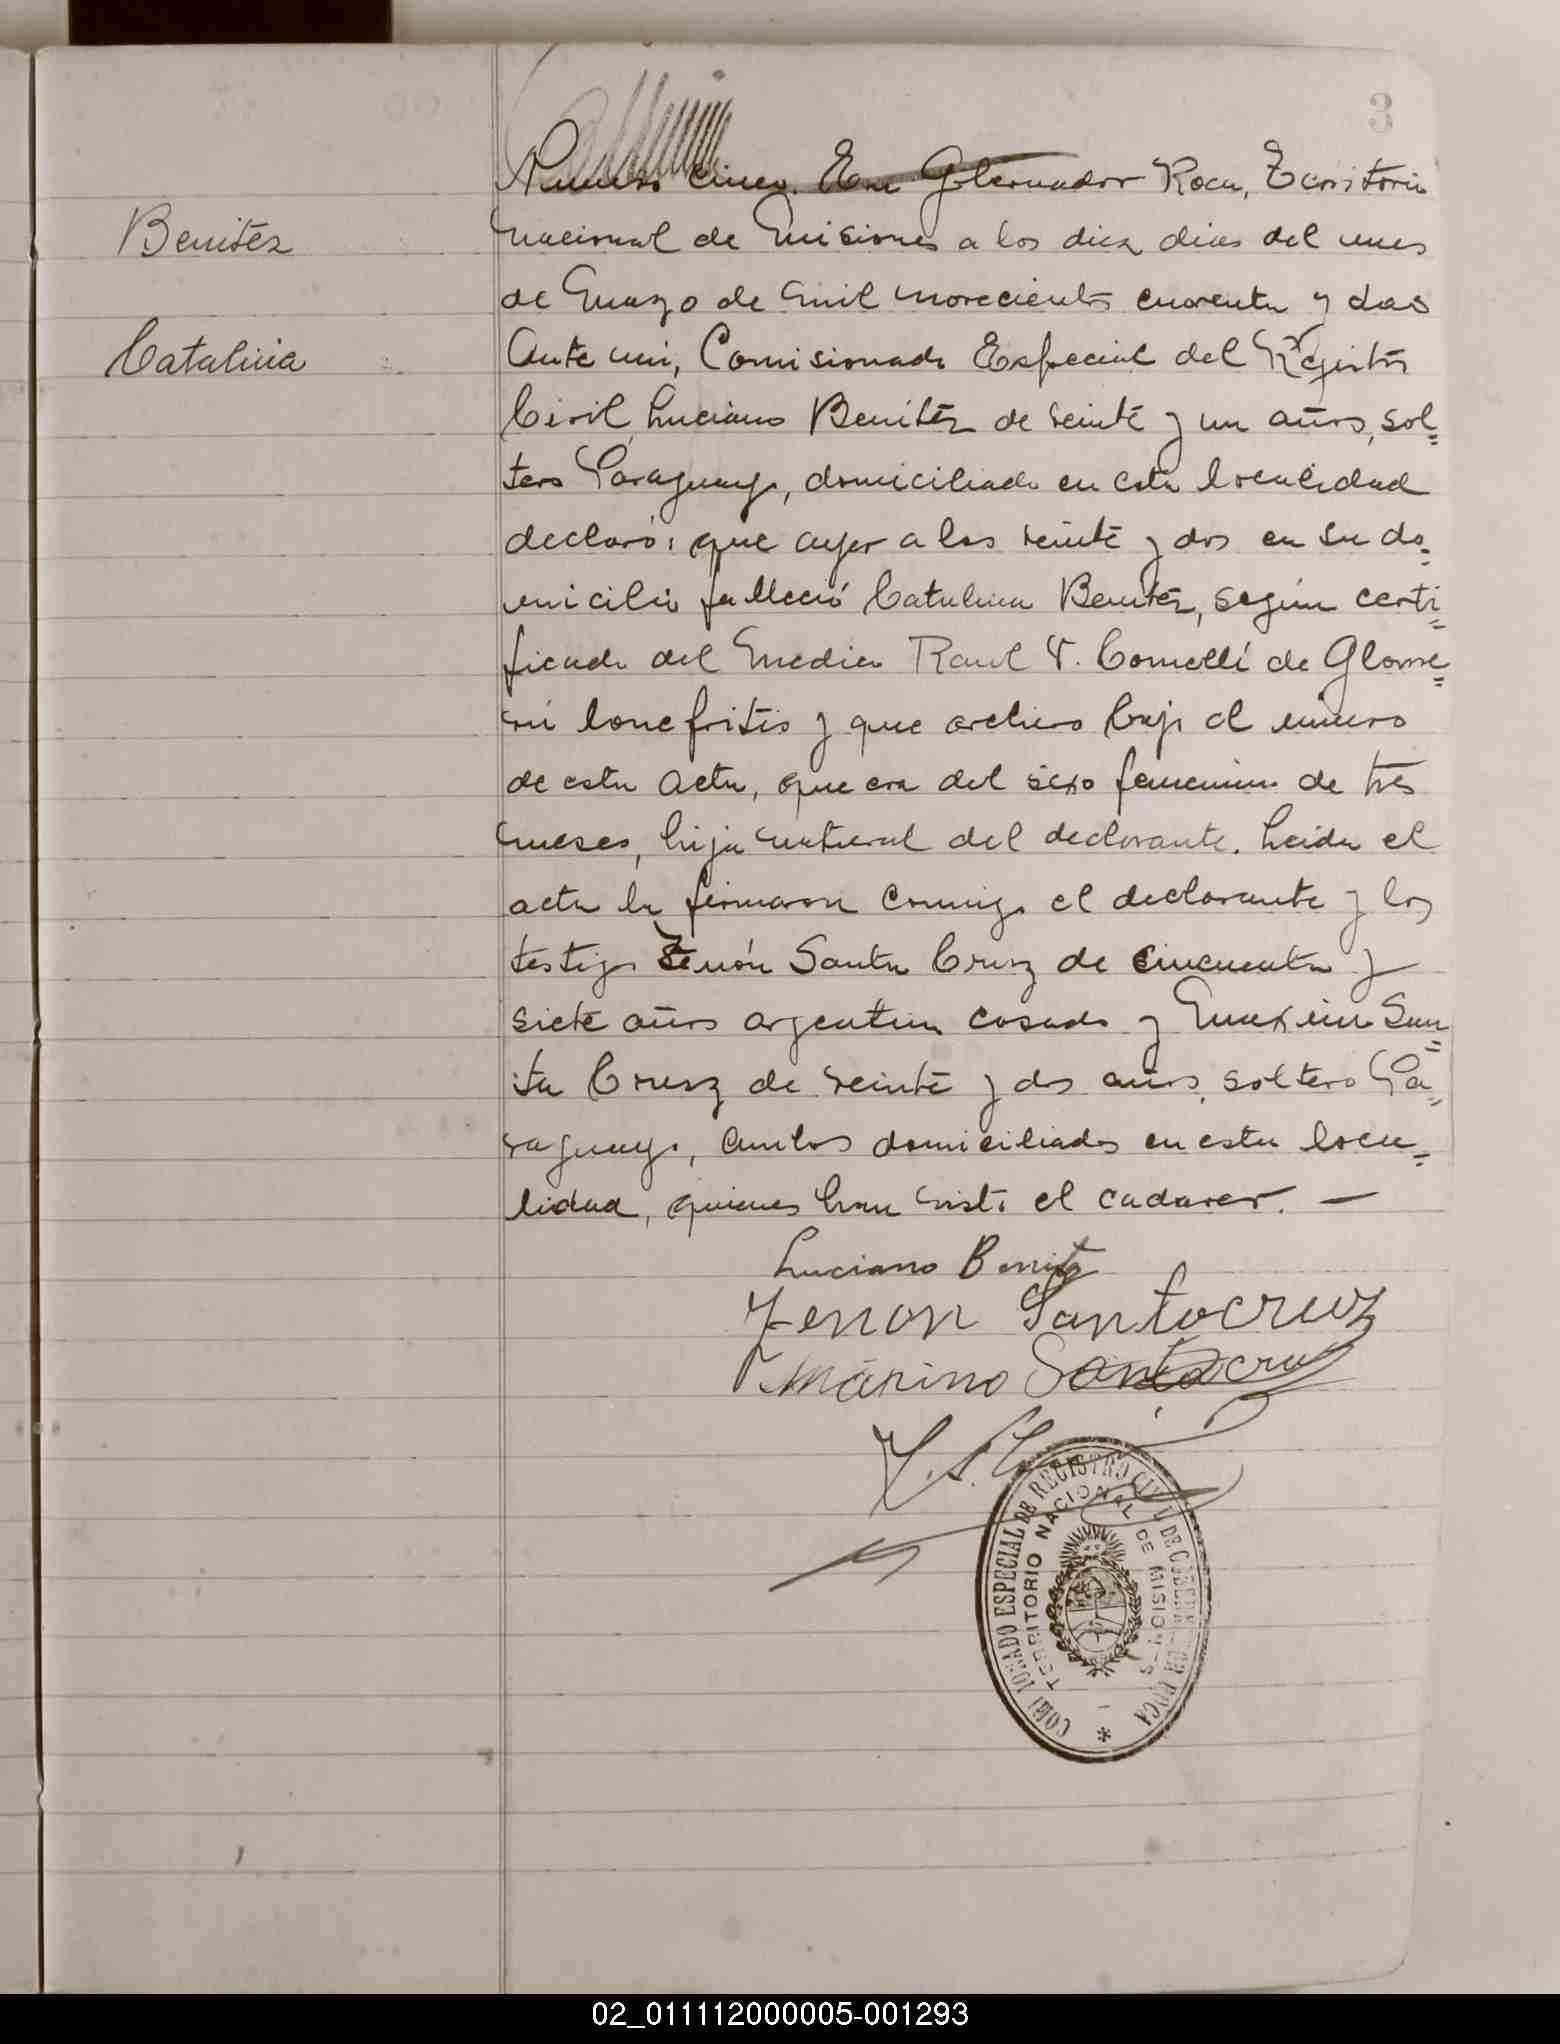 3
Numero cinco. En Gobernador Roca, Territorio
Benitez
nacional de Misiones a los diez dias del mes
de Marzo de mil novecientos cuarenta y dos
Catalina
Ante mi, Comisionado Especial del Registro
Civil, Luciano Benitez de veinte y un años, sol=
tero Paraguayo, domiciliado en esta localidad
declaró: que ayer a las veinte y dos en su do=
micilio falleció Catalina Benitez, según certi=
ficado del medico Raul V. Comelli de Glome=
rulonefritis y que archivo bajo el numero
de esta acta, que era del sexo femenino de tres
meses, hija natural del declarante. Leida el
acta la firmaron conmigo el declarante y los
testigos Zenón Santa Cruz de cincuenta y
siete años argentino casado y Maximo San=
ta Cruz de veinte y dos años, soltero Pa=
raguayo, ambos domiciliados en esta loca=
lidad, quienes han visto el cadaver. —
Luciano Benitez
Zenon Santacruz
Marino Santacruz
COMISIONADO ESPECIAL DE REGISTRO CIVIL DE GOBERNADOR ROCA
TERRITORIO NACIONAL DE MISIONES
*
02_011112000005-001293